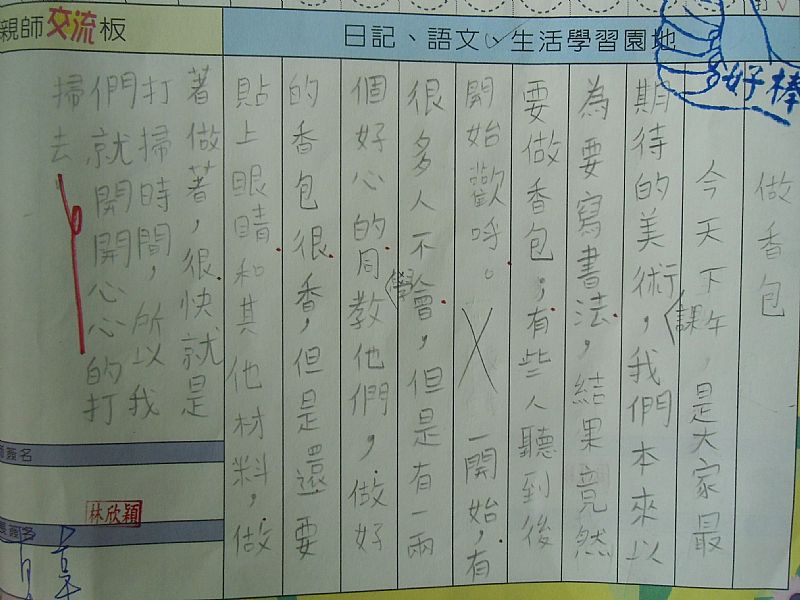 親師交流板
日記、語文、生活學習園地
好棒
做香包
今天下午，是大家最
期待的美術課，我們本來以
為要寫書法，結果竟然
要做香包，有些人聽到後
開始歡呼。一開始，有
很多人不會，但是有一兩
個好心的同學教他們，做好
的香包很香，但是還要
貼上眼睛和其他材料，做
著做著，很快就是
打掃時間，所以我
們就開開心心的打
掃去。
簽名
林欣穎
簽名